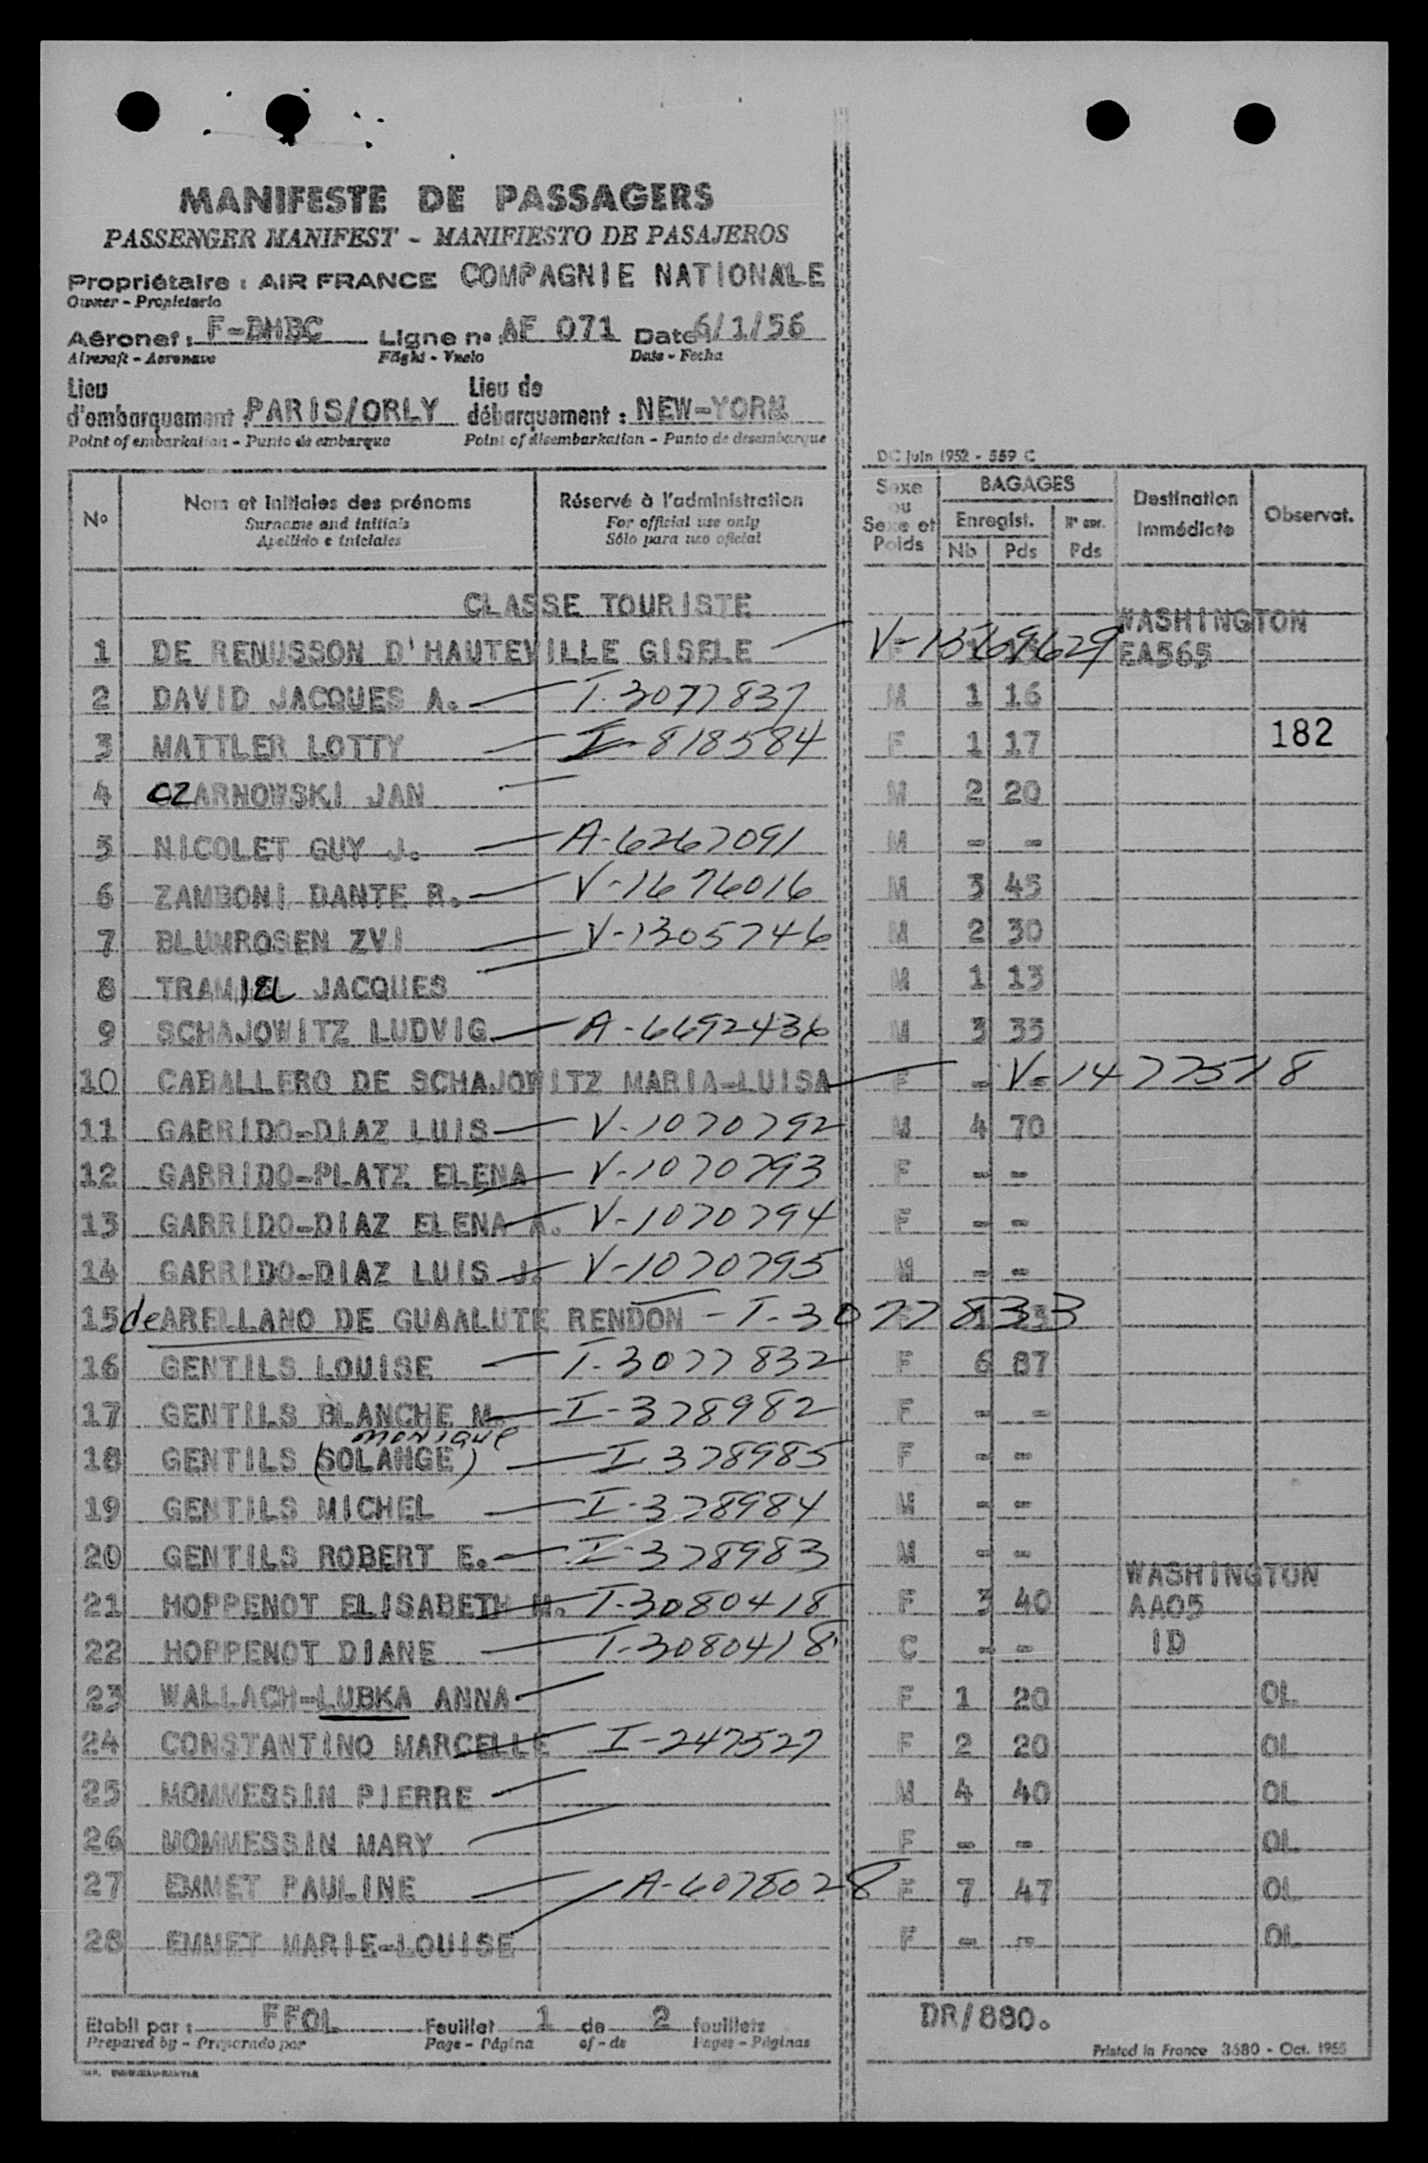 MANIFESTE DE PASSAGERS
PASSENGER MANIFEST - MANIFIESTO DE PASAJEROS
Propriétaire : AIR FRANCE COMPAGNIE NATIONALE
Owner - Propietario
Aéronef : F-BHBC Ligne n° AF 071 Date 6/1/56
Aircraft - Aeronave Flight - Vuelo Date - Fecha
Lieu d'embarquement : PARIS/ORLY Lieu de débarquement : NEW-YORK
Point of embarkation - Punto de embarque Point of disembarkation - Punto de desembarque
DC Juin 1952 - 559 C
N° Nom et initiales des prénoms Réservé à l'administration Sexe ou Sexe et Poids BAGAGES Destination Immédiate Observat.
Surname and initials For official use only Enregist. N° enr.
Apellido e iniciales Sólo para uso oficial Nb Pds Pds
CLASSE TOURISTE
WASHINGTON
1 DE RENUSSON D'HAUTEVILLE GISELE V-1569629 EA565
2 DAVID JACQUES A. I-3077837 M 1 16
3 MATTLER LOTTY I-818584 F 1 17 182
4 CZARNOWSKI JAN M 2 20
5 NICOLET GUY J. A-6267091 M - -
6 ZAMBONI DANTE R. V-1676016 M 3 45
7 BLUMROSEN ZVI V-1305746 M 2 30
8 TRAMIEL JACQUES M 1 13
9 SCHAJOWITZ LUDVIG A-6692436 M 3 35
10 CABALLERO DE SCHAJOWITZ MARIA-LUISA F - - V-1477578
11 GARRIDO-DIAZ LUIS V-1070792 M 4 70
12 GARRIDO-PLATZ ELENA V-1070793 F - -
13 GARRIDO-DIAZ ELENA A. V-1070794 F - -
14 GARRIDO-DIAZ LUIS J. V-1070795 M - -
15 de ARELLANO DE GUAALUTE RENDON - I-3077833
16 GENTILS LOUISE I-3077832 F 6 87
17 GENTILS BLANCHE M. I-378982 F - -
monique
18 GENTILS (SOLANGE) I-378985 F - -
19 GENTILS MICHEL I-378984 M - -
20 GENTILS ROBERT E. I-378983 M - -
WASHINGTON
21 HOPPENOT ELISABETH M. I-3080418 F 3 40 AA05
22 HOPPENOT DIANE I-3080418 C - - ID
23 WALLACH-LUBKA ANNA F 1 20 OL
24 CONSTANTINO MARCELLE I-247527 F 2 20 OL
25 MOMMESSIN PIERRE M 4 40 OL
26 MOMMESSIN MARY F - - OL
27 EMMET PAULINE A-6078028 F 7 47 OL
28 EMMET MARIE-LOUISE F - - OL
Etabli par : FFOL Feuillet 1 de 2 feuillets DR/880.
Prepared by - Preparado por Page - Página of - de Pages - Páginas
Printed in France 3680 - Oct. 1955